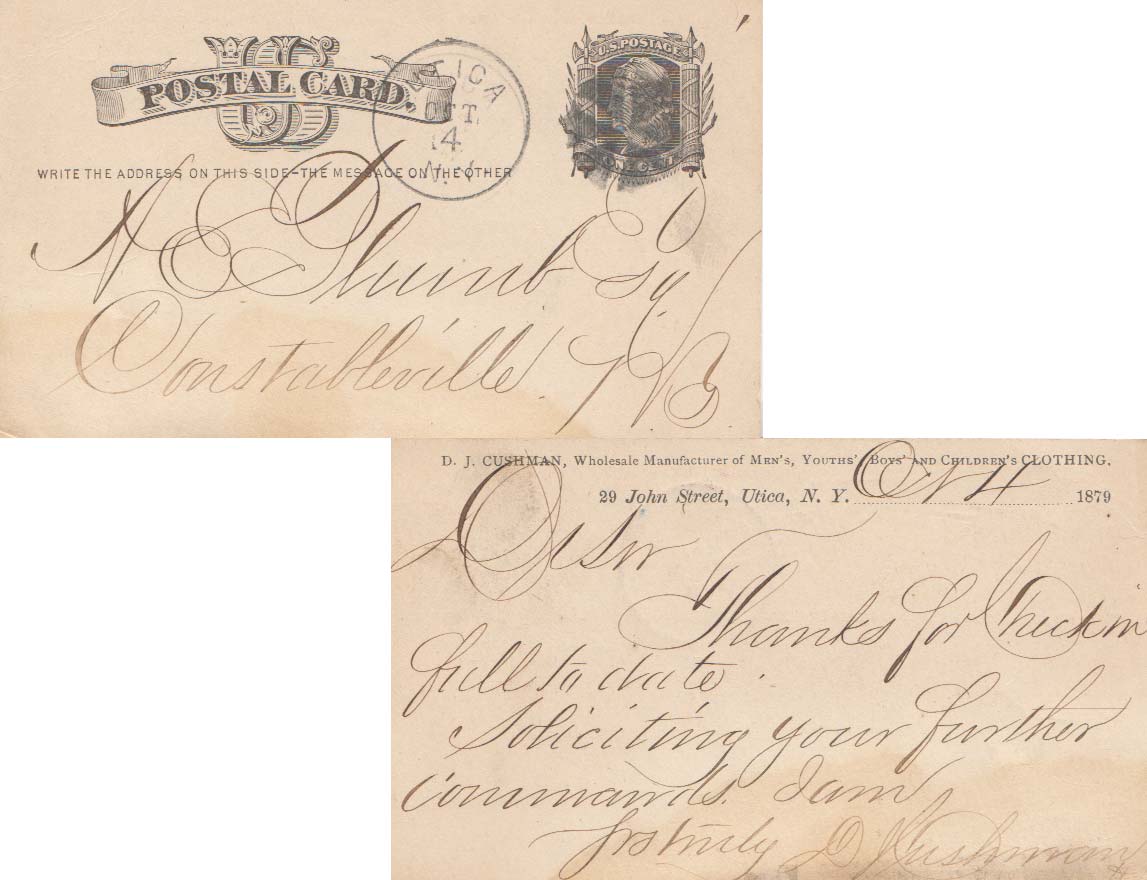 US
POSTAL CARD.
U.S. POSTAGE
ONE CENT
UTICA
OCT
4
N.Y.
WRITE THE ADDRESS ON THIS SIDE-THE MESSAGE ON THE OTHER
N E Plumb Esq
Constableville
N.Y.
D. J. CUSHMAN, Wholesale Manufacturer of MEN'S, YOUTHS' BOYS' AND CHILDREN'S CLOTHING,
29 John Street, Utica, N. Y. Oct 4 1879
D Sir
Thanks for Check in
full to date.
Soliciting your further
commands. I am
Yrs truly D J Cushman